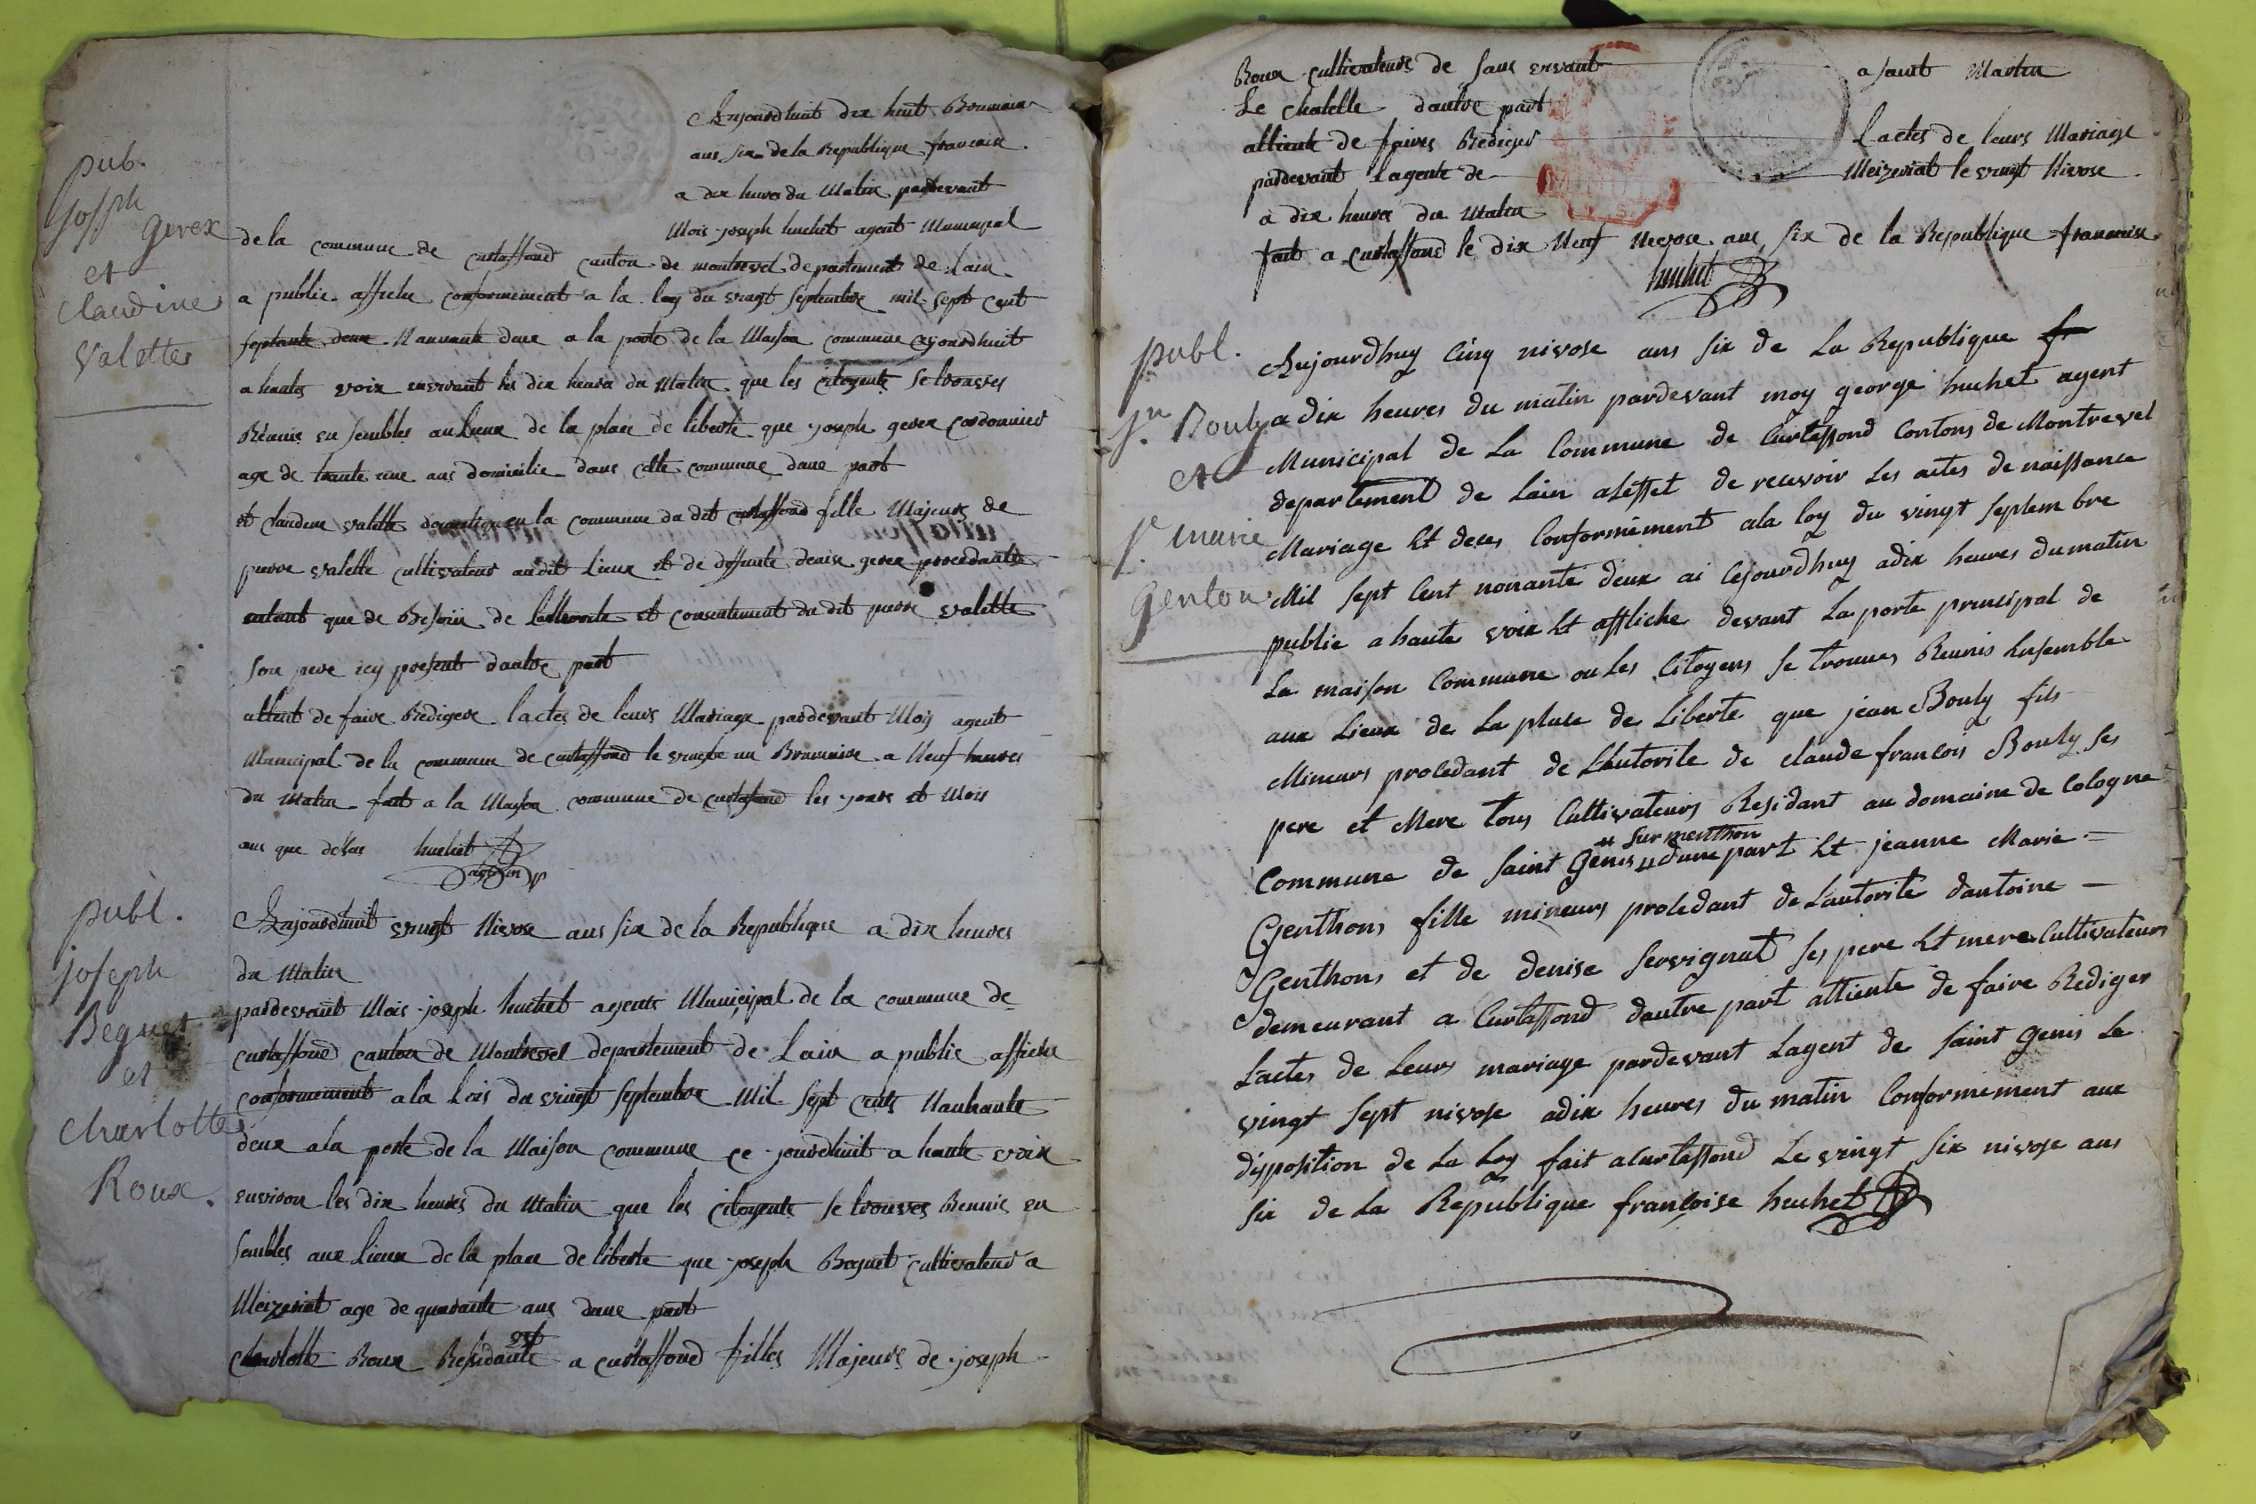 pub.
joseph
Gerex
et
Claudine
Valette
Aujourdhuit dix huit Brumaire
ans six de la Republique francaise
a dix heures du Matin pardevant
Mois joseph huchet agent Municipal
de la commune de curtaffond canton de montrevel departement de lain
a publie affiche conformement a la loy du vingt septembre mil sept cent
septante deux Nannante deux a la porte de la Maison commune cejourdhuit
a hautes voix environt les dix heures du Matin que les citoyents se trouves
Réunis en sembles au Lieux de la place de liberté que joseph gerex Cordonnier
age de trante une ans domicilie dans cette commune dune part
et claudine valette en la commune du dit curtaffond fille Majeurs de
pierre valette cultivateur audit Lieux et de deffunte denise gerex procedante
autant que de Besoin de Lautorite et consentement du dit pierre valette
son pere icy present dautre part
attent de faire Redigere lactes de leurs Mariage pardevant Mois agent
Municipal de la commune de curtaffond le vingte un Brumaire a Neuf heures
du Matin fait a la Maison commune de curtaffond les jours et Mois
ans que desus huchet
agent
publ.
joseph
Beguet
et
Charlotte
Roux.
Aujourdhuit vingt Nivose ans six de la Republique a dix heures
du Matin
pardevant Mois joseph huchet agents Municipal de la commune de
curtaffond canton de Montrevel departement de Lain a publie affiche
conformement a la Lois du vingt septembre Mil sept cents Nautante
deux a la porte de la Maison commune ce jourdhuit a haute voix
environ les dix heures du Matin que les citoyents se trouves Reunis en
sembles aux Lieux de la place de liberte que joseph Beguet cultivateur a
Meizeriat age de quarante ans dune part
Charlotte Roux Residante a curtaffond filles Majeurs de joseph
Roux cultivateurs de saus ervant a saint Martin
Le chatelle dautre part
attiente de faires Rediger Lactes de leurs Mariage
pardevant Lagente de Meizeriat le vingt Nivose
a dix heures du Matin
fait a curtaffond le dix Neuf Nevose ans six de la Republique francaise
huchet
publ.
jn Bouly
et
je marie
Genton
Aujourdhuy cinq nivose ans six de La Republique fr
a dix heures du matin pardevant moy george huchet agent
Municipal de La Commune de Curtaffond Contons de Montrevel
departement de Lain aleffet de recevoir Les actes de naissance
Mariage Et deces Conformément ala loy du vingt septembre
Mil sept Cent nonante deux ai Cejourdhuy adix heures dumatin
publie a haute voix Et affliche devant La porte principal de
La maison Commune ou Les Citoyens se trouves Reunis Ensemble
aux Lieux de La plase de Liberte que jean Bouly fils
Mineurs procedant de Lhutorite de claude francois Bouly ses
pere et Mere tous Cultivateurs Residant au domaine de Cologne
sur menthon
Commune de saint Genis " dune part Et jeanne Marie
Genthons fille mineurs procedant de Lautorité dantoine
Genthons et de denise servignat ses pere Et mere Cultivateurs
demeurant a Curtaffond dautre part attiente de faire Rediger
Lactes de Leurs mariage pardevant Lagent de saint Genis Le
vingt sept nivose adix heures du matin Conformement aux
disposition de La Loy fait aCurtaffond Le vingt six nivose ans
six de La Republique françoise huchet